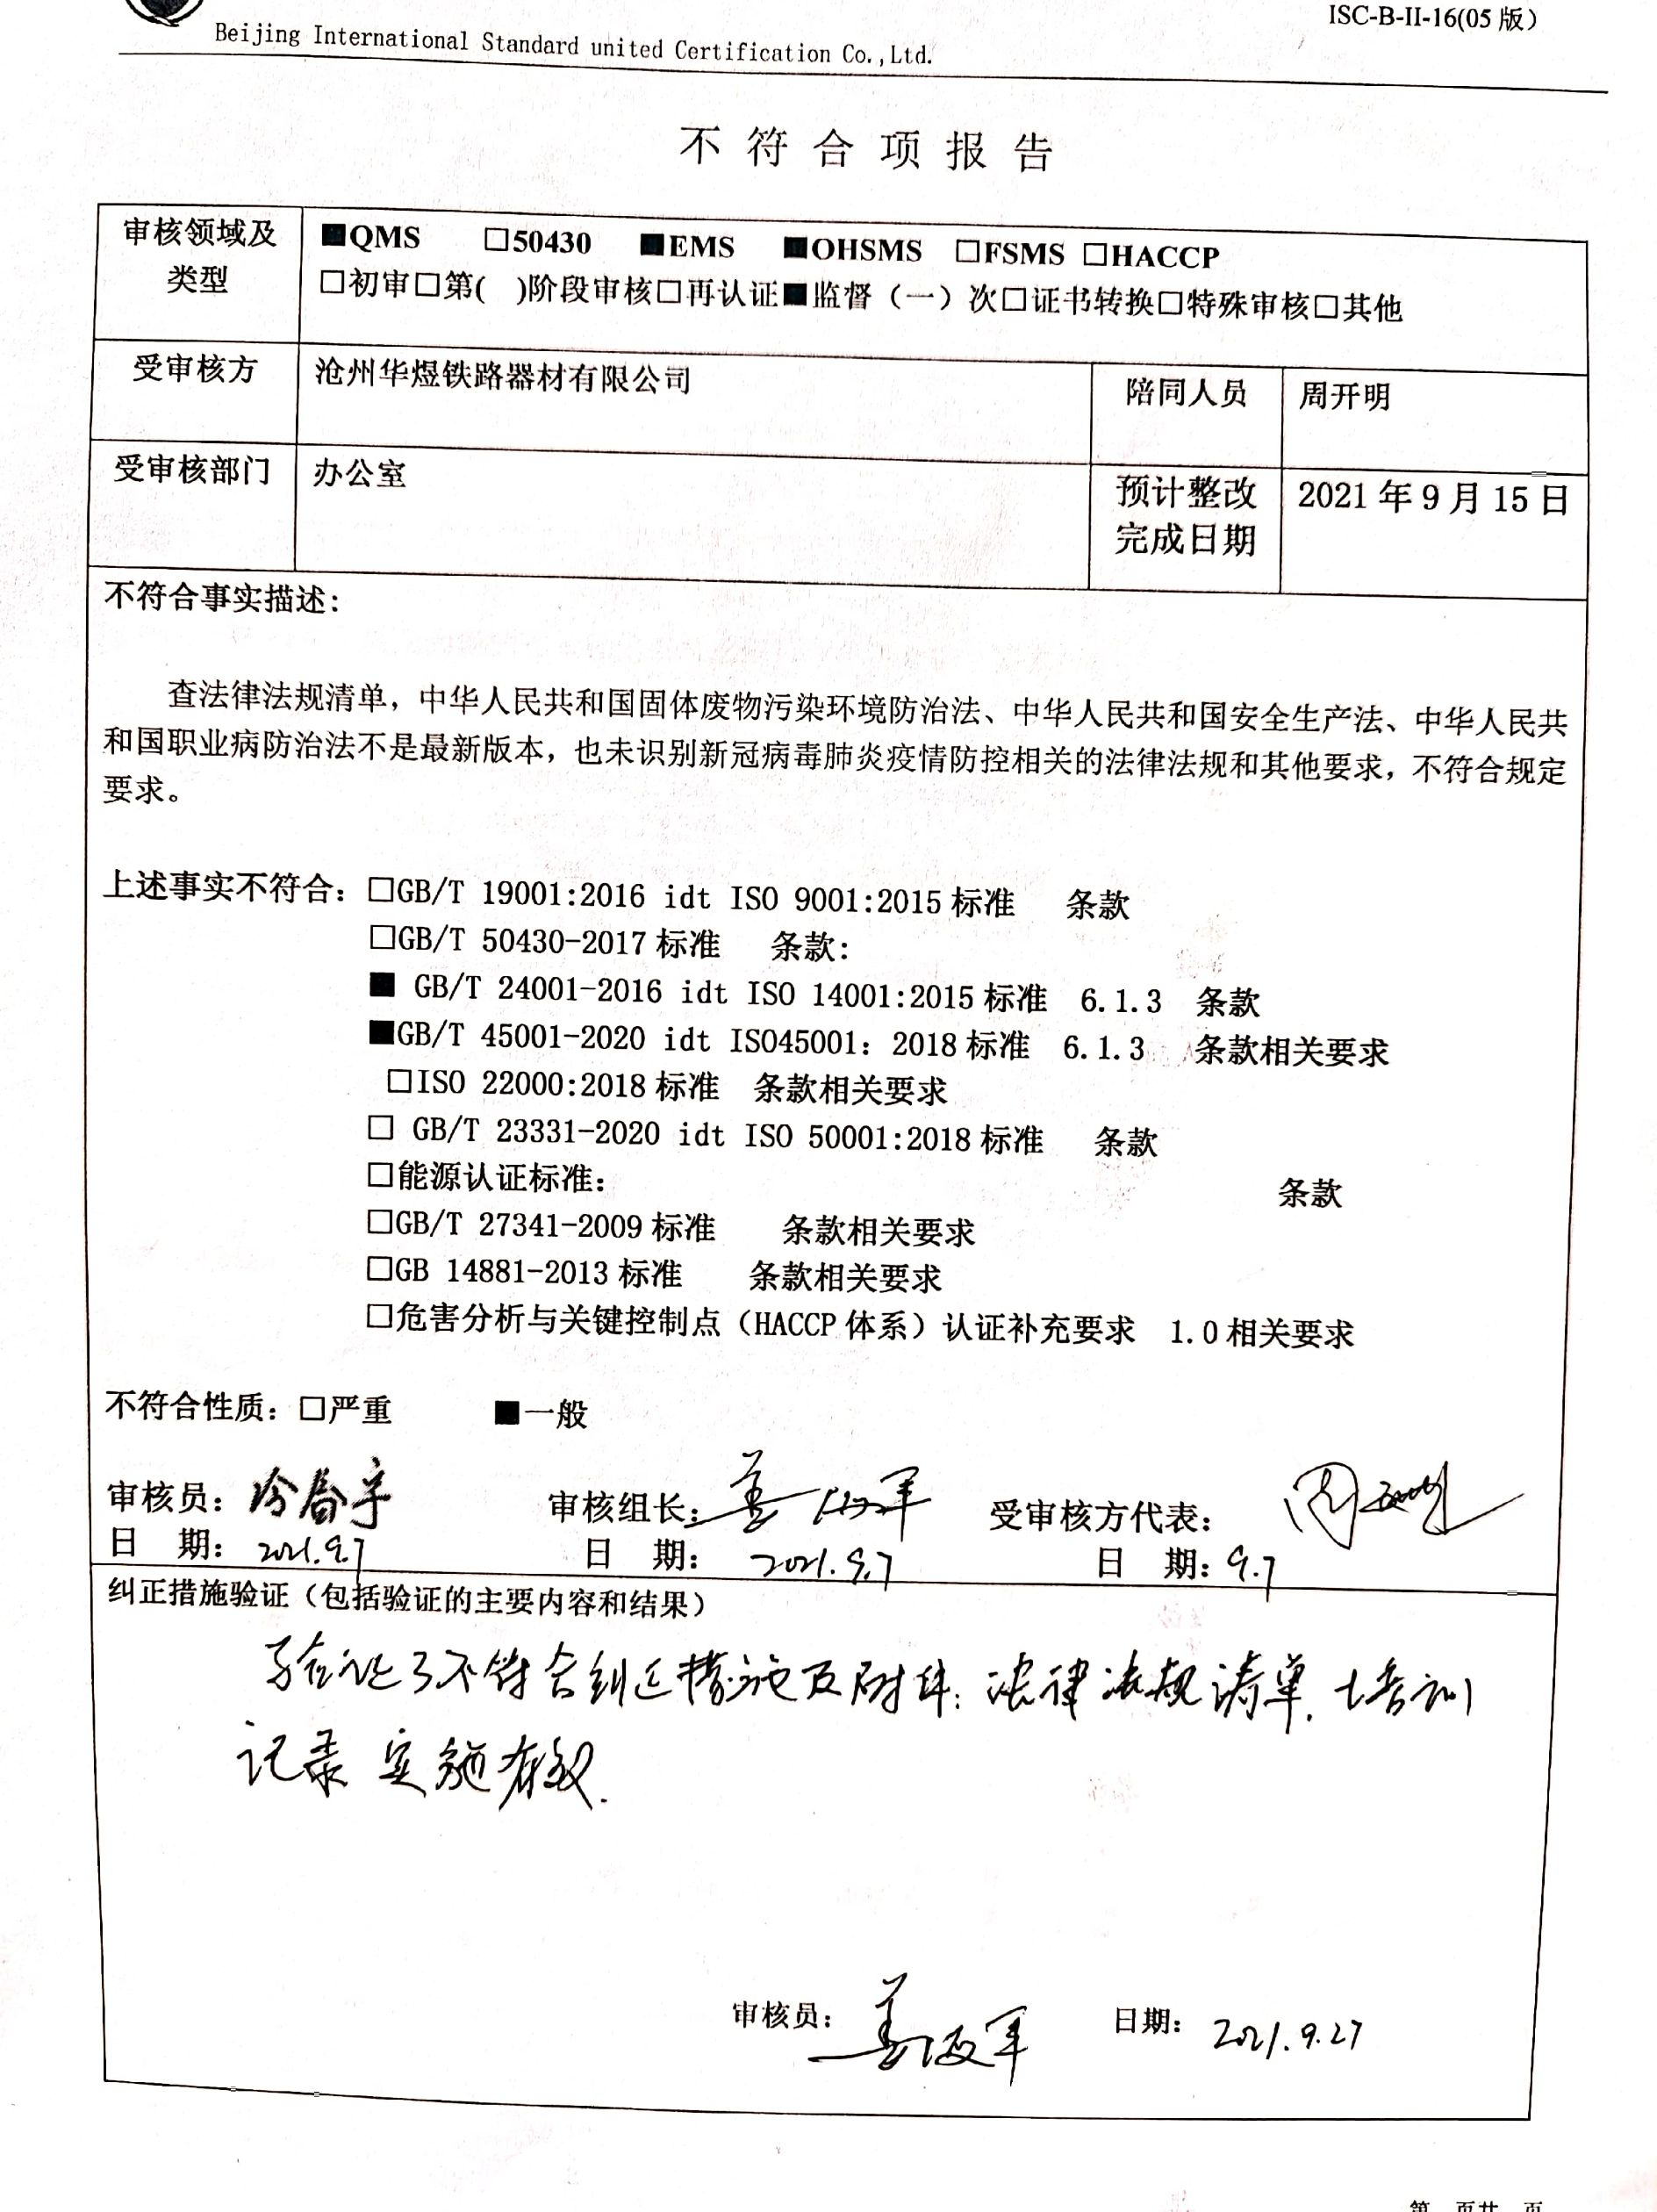 ISC-B-II-16(05 版)
Beijing International Standard united Certification Co.,Ltd.
不符合项报告
审核领域及
类型
■QMS □50430 ■EMS ■OHSMS □FSMS □HACCP
□初审□第( )阶段审核□再认证■监督（一）次□证书转换□特殊审核□其他
受审核方
沧州华煜铁路器材有限公司
陪同人员
周开明
受审核部门
办公室
预计整改
完成日期
2021 年 9 月 15 日
不符合事实描述：
查法律法规清单，中华人民共和国固体废物污染环境防治法、中华人民共和国安全生产法、中华人民共
和国职业病防治法不是最新版本，也未识别新冠病毒肺炎疫情防控相关的法律法规和其他要求，不符合规定
要求。
上述事实不符合：□GB/T 19001:2016 idt ISO 9001:2015 标准 条款
□GB/T 50430-2017 标准 条款：
■ GB/T 24001-2016 idt ISO 14001:2015 标准 6.1.3 条款
■GB/T 45001-2020 idt ISO45001：2018 标准 6.1.3 条款相关要求
□ISO 22000:2018 标准 条款相关要求
□ GB/T 23331-2020 idt ISO 50001:2018 标准 条款
□能源认证标准： 条款
□GB/T 27341-2009 标准 条款相关要求
□GB 14881-2013 标准 条款相关要求
□危害分析与关键控制点（HACCP 体系）认证补充要求 1.0 相关要求
不符合性质：□严重 ■一般
审核员： 审核组长： 受审核方代表：
日 期：2021.9.7 日 期：2021.9.7 日 期：9.7
纠正措施验证（包括验证的主要内容和结果）
验证了不符合纠正措施及附件：法律法规清单、培训
记录 实施有效.
审核员： 日期：2021.9.27